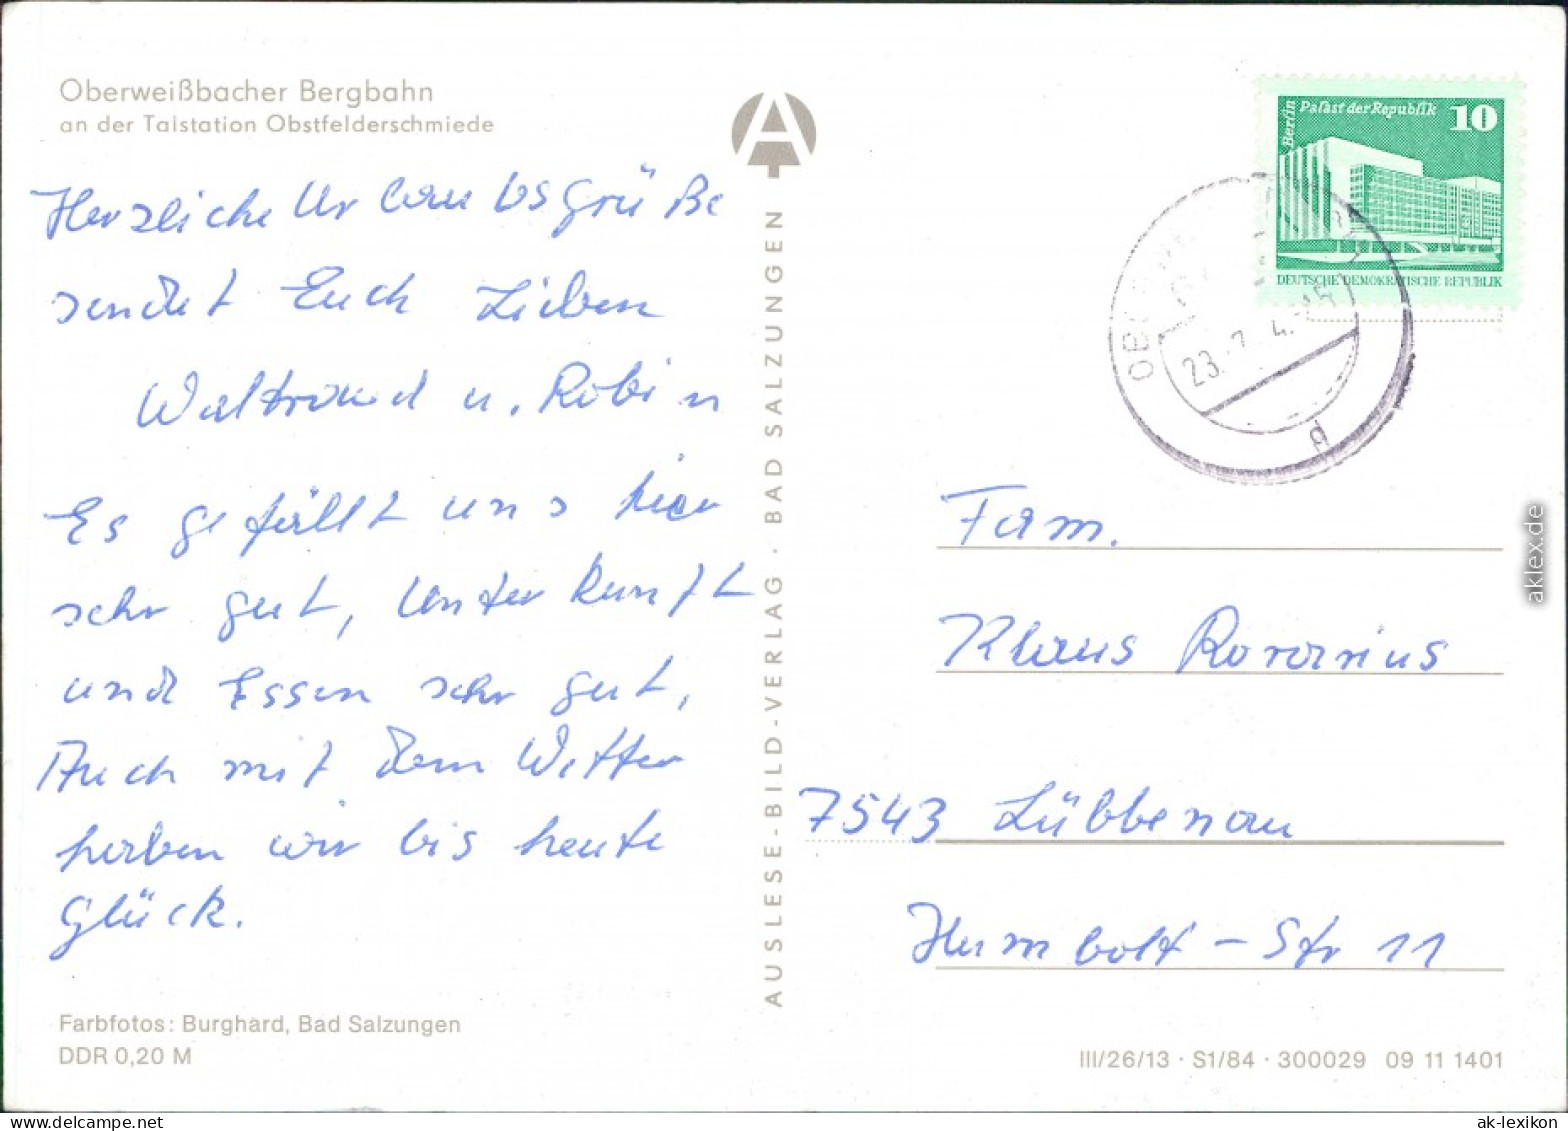 Oberweißbacher Bergbahn
an der Talstation Obstfelderschmiede
Herzliche Urlaubsgrüße
sendet Euch Lieben
Waltraud u. Robin
Es gefällt uns hier
sehr gut, Unterkunft
und Essen sehr gut,
Auch mit dem Wetter
haben wir bis heute
Glück.
Farbfotos: Burghard, Bad Salzungen
DDR 0,20 M
AUSLESE-BILD-VERLAG · BAD SALZUNGEN
Berlin
Palast der Republik 10
DEUTSCHE DEMOKRATISCHE REPUBLIK
23.
d
Fam.
Klaus
7543 Lübbenau
Humbolt-Str 11
III/26/13 · S1/84 · 300029 09 11 1401
aklex.de
ak-lexikon